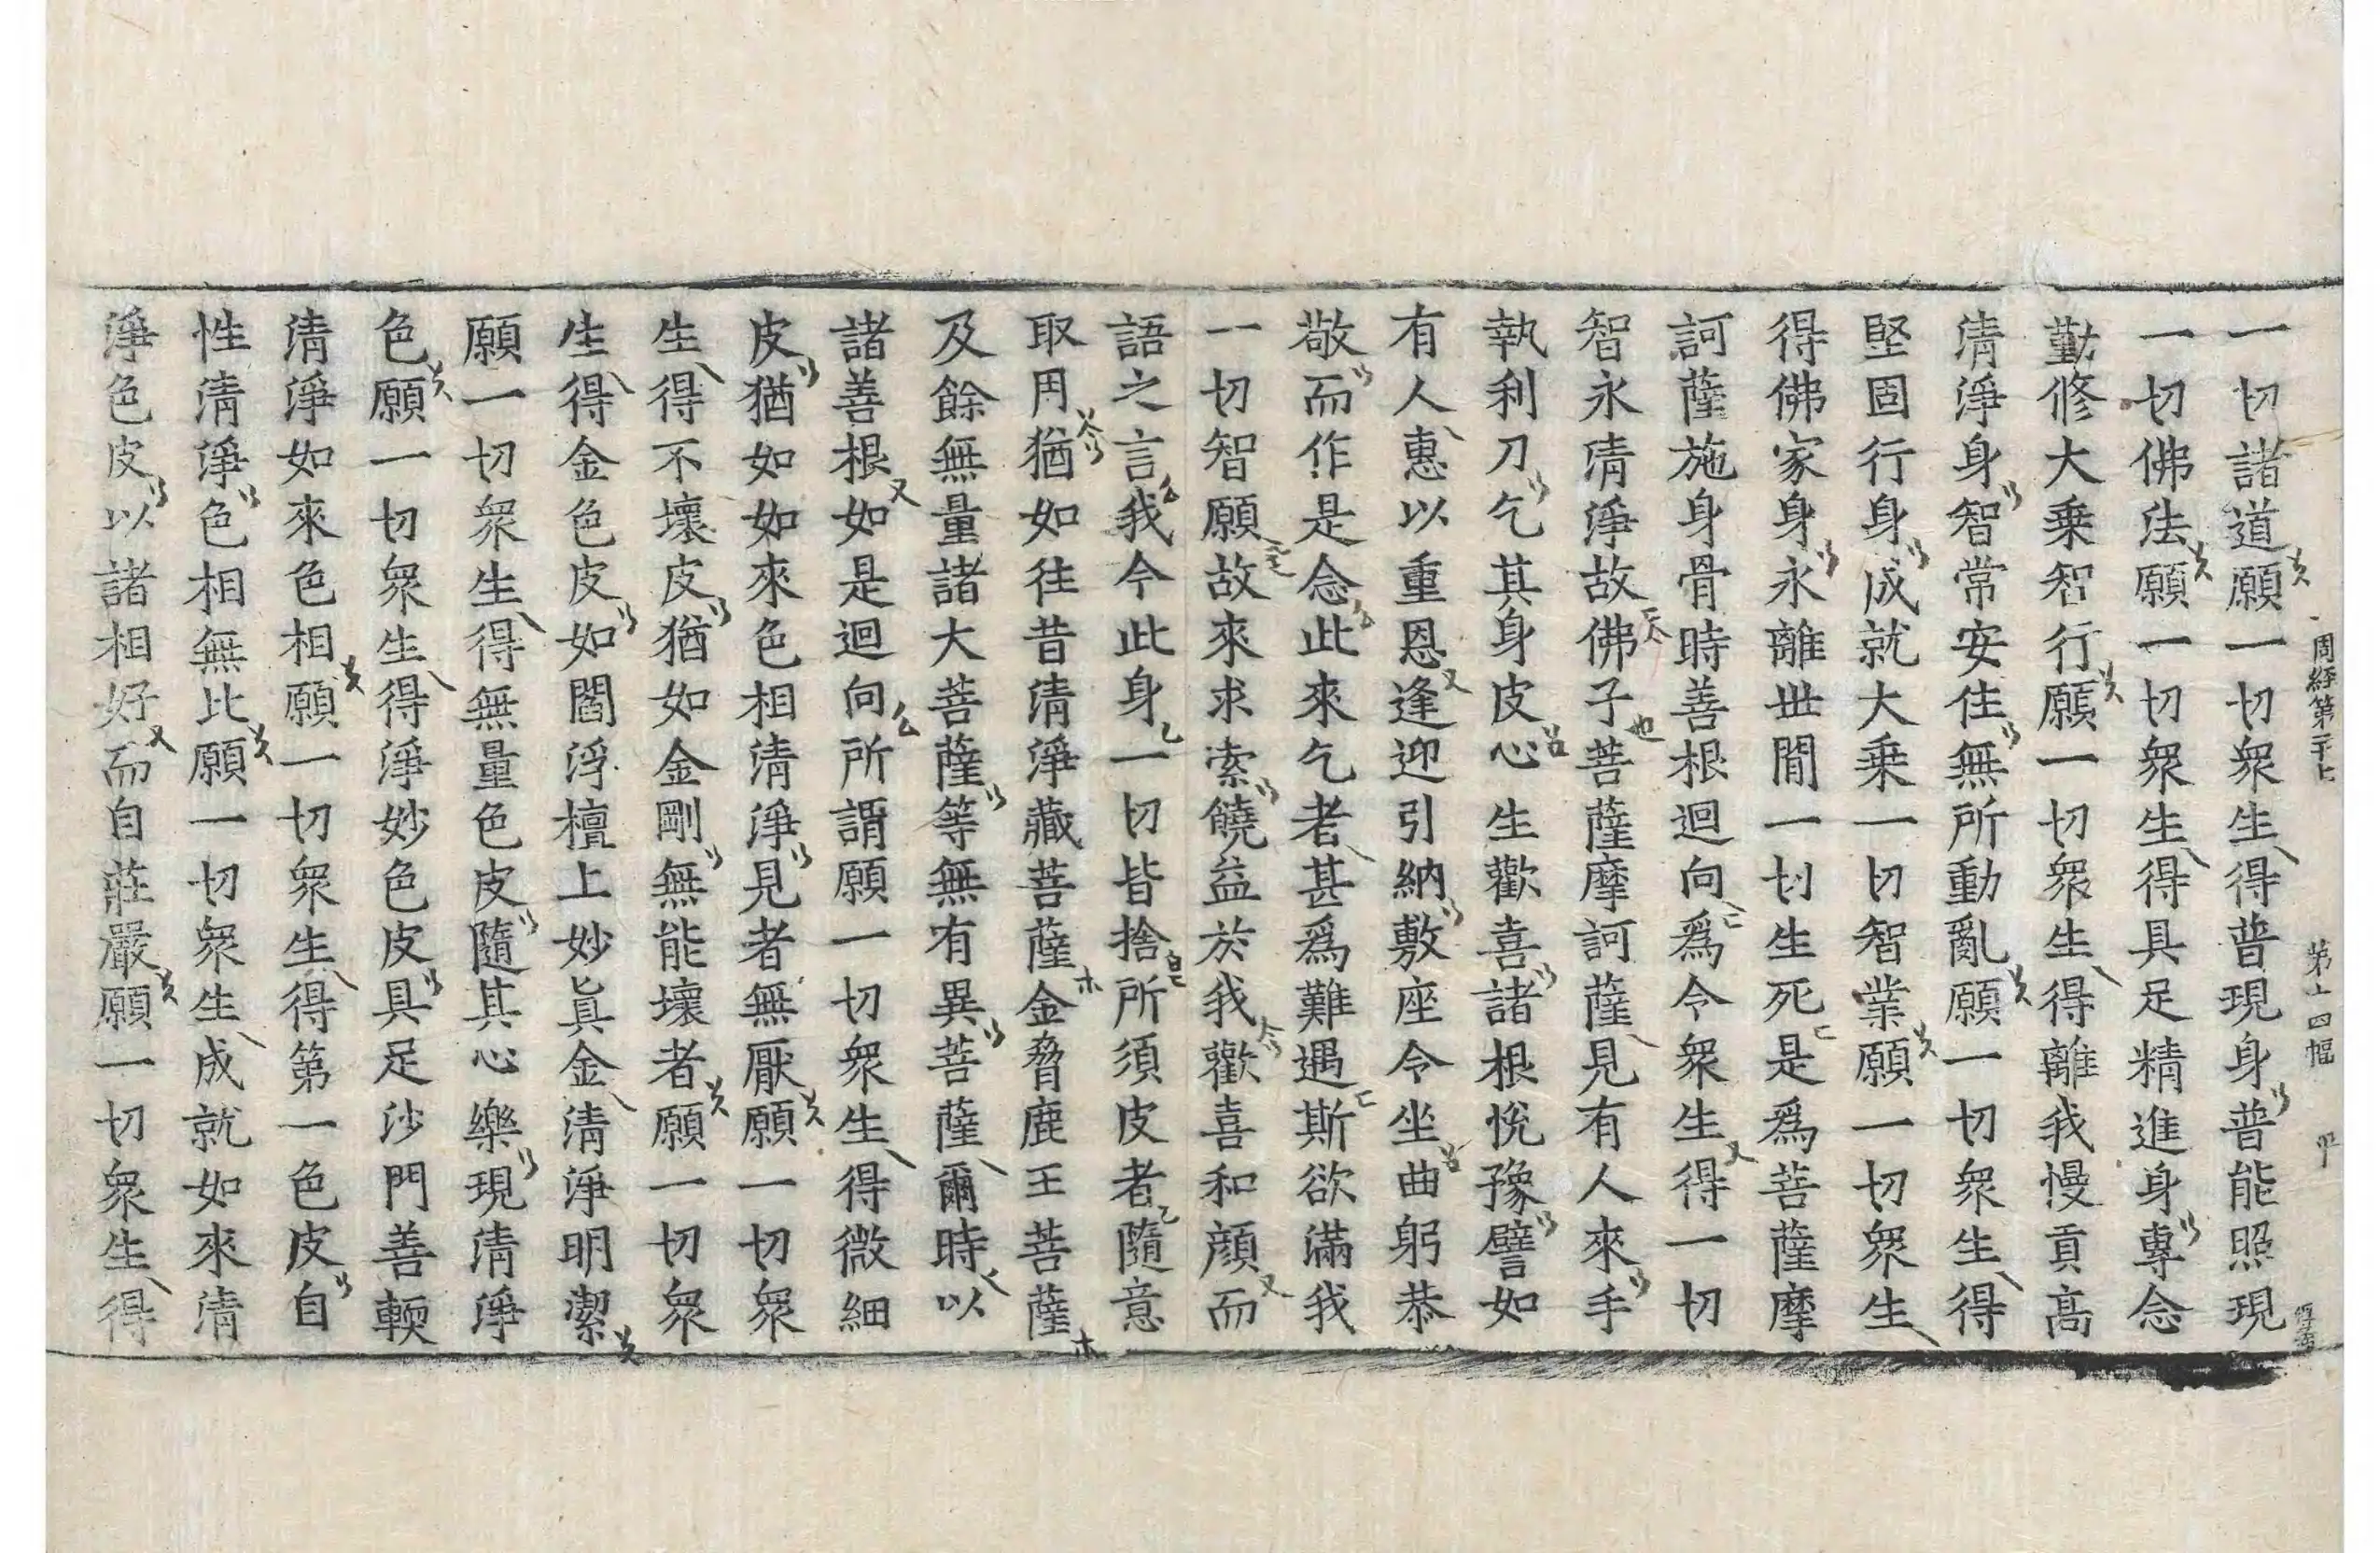 周經第二十七 第十四幅
一切諸道願一切衆生得普現身普能照現
一切佛法願一切衆生得具足精進身專念
勤修大乗智行願一切衆生得離我慢貢高
清淨身智常安住無所動亂願一切衆生得
堅固行身成就大乗一切智業願一切衆生
得佛家身永離世間一切生死是爲菩薩摩
訶薩施身骨時善根迴向爲令衆生得一切
智永清淨故佛子菩薩摩訶薩見有人來手
執利刀乞其身皮心生歡喜諸根悅豫譬如
有人惠以重恩逢迎引納敷座令坐曲躬恭
敬而作是念此來乞者甚爲難遇斯欲滿我
一切智願故來求索饒益於我歡喜和顔而
語之言我今此身一切皆捨所須皮者隨意
取用猶如往昔清淨藏菩薩金脅鹿王菩薩
及餘無量諸大菩薩等無有異菩薩爾時以
諸善根如是迴向所謂願一切衆生得微細
皮猶如如來色相清淨見者無厭願一切衆
生得不壞皮猶如金剛無能壞者願一切衆
生得金色皮如閻浮檀上妙眞金清淨明潔
願一切衆生得無量色皮隨其心樂現清淨
色願一切衆生得淨妙色皮具足沙門善輭
清淨如來色相願一切衆生得第一色皮自
性清淨色相無比願一切衆生成就如來清
淨色皮以諸相好而自莊嚴願一切衆生得